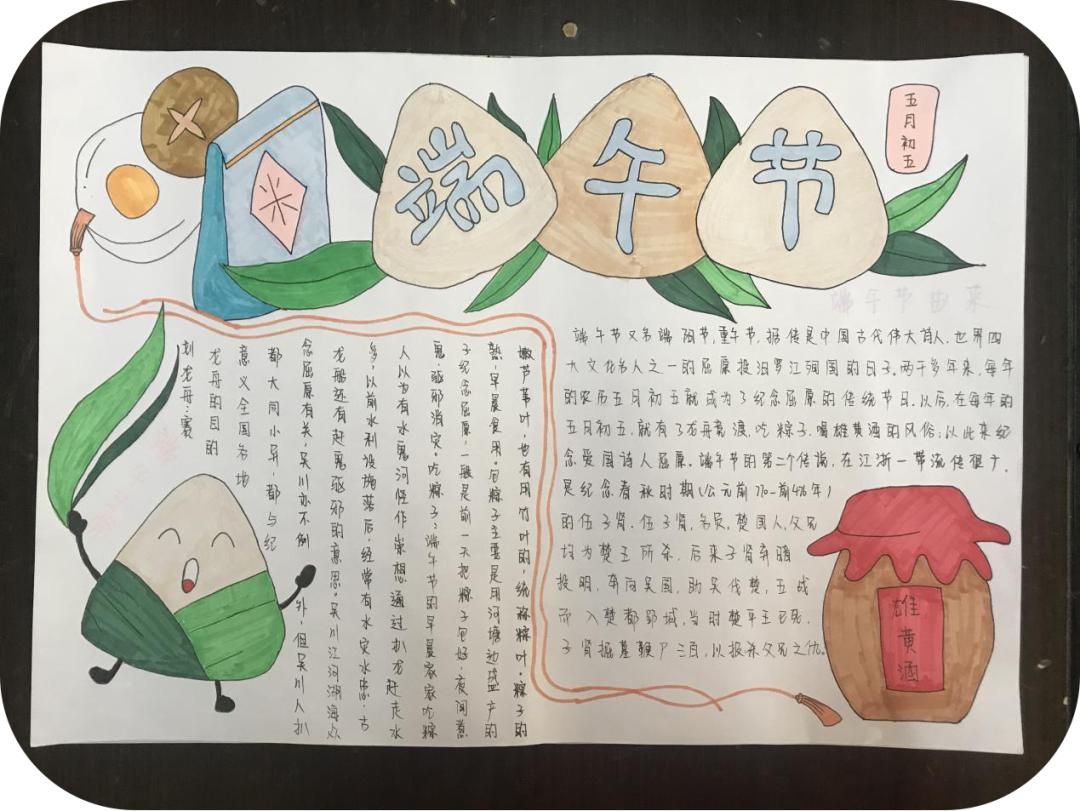 端午节
五月初五
端午节又名端阳节,重午节,据传是中国古代伟大诗人、世界四
大文化名人之一的屈原投汨罗江殉国的日子。两千多年来,每年
的农历五月初五就成为了纪念屈原的传统节日,以后,在每年的
五月初五,就有了龙舟竞渡,吃粽子,喝雄黄酒的风俗;以此来纪
念爱国诗人屈原。端午节的第二个传说,在江浙一带流传很广,
是纪念春秋时期(公元前770—前476年)
的伍子胥。伍子胥,名员,楚国人,父兄
均为楚王所杀,后来子胥弃暗
投明,奔向吴国,助吴伐楚,五战
而入楚都郢城,当时楚平王已死,
子胥掘墓鞭尸三百,以报杀父兄之仇。
划龙舟:赛
龙舟的目的
意义全国各地
都大同小异,都与纪
念屈原有关,吴川亦不例外,但吴川人扒
龙船还有赶鬼驱邪的意思。吴川江河湖海众
多,以前水利设施落后,经常有水灾水患,古
人以为有水鬼河怪作祟想通过扒龙赶走水
鬼,驱邪消灾。吃粽子:端午节的早晨家家吃粽
子纪念屈原,一般是前一天把粽子包好,夜间煮
熟,早晨食用。包粽子主要是用河塘边盛产的
嫩芦苇叶,也有用竹叶的,统称粽叶。粽子的
雄黄酒